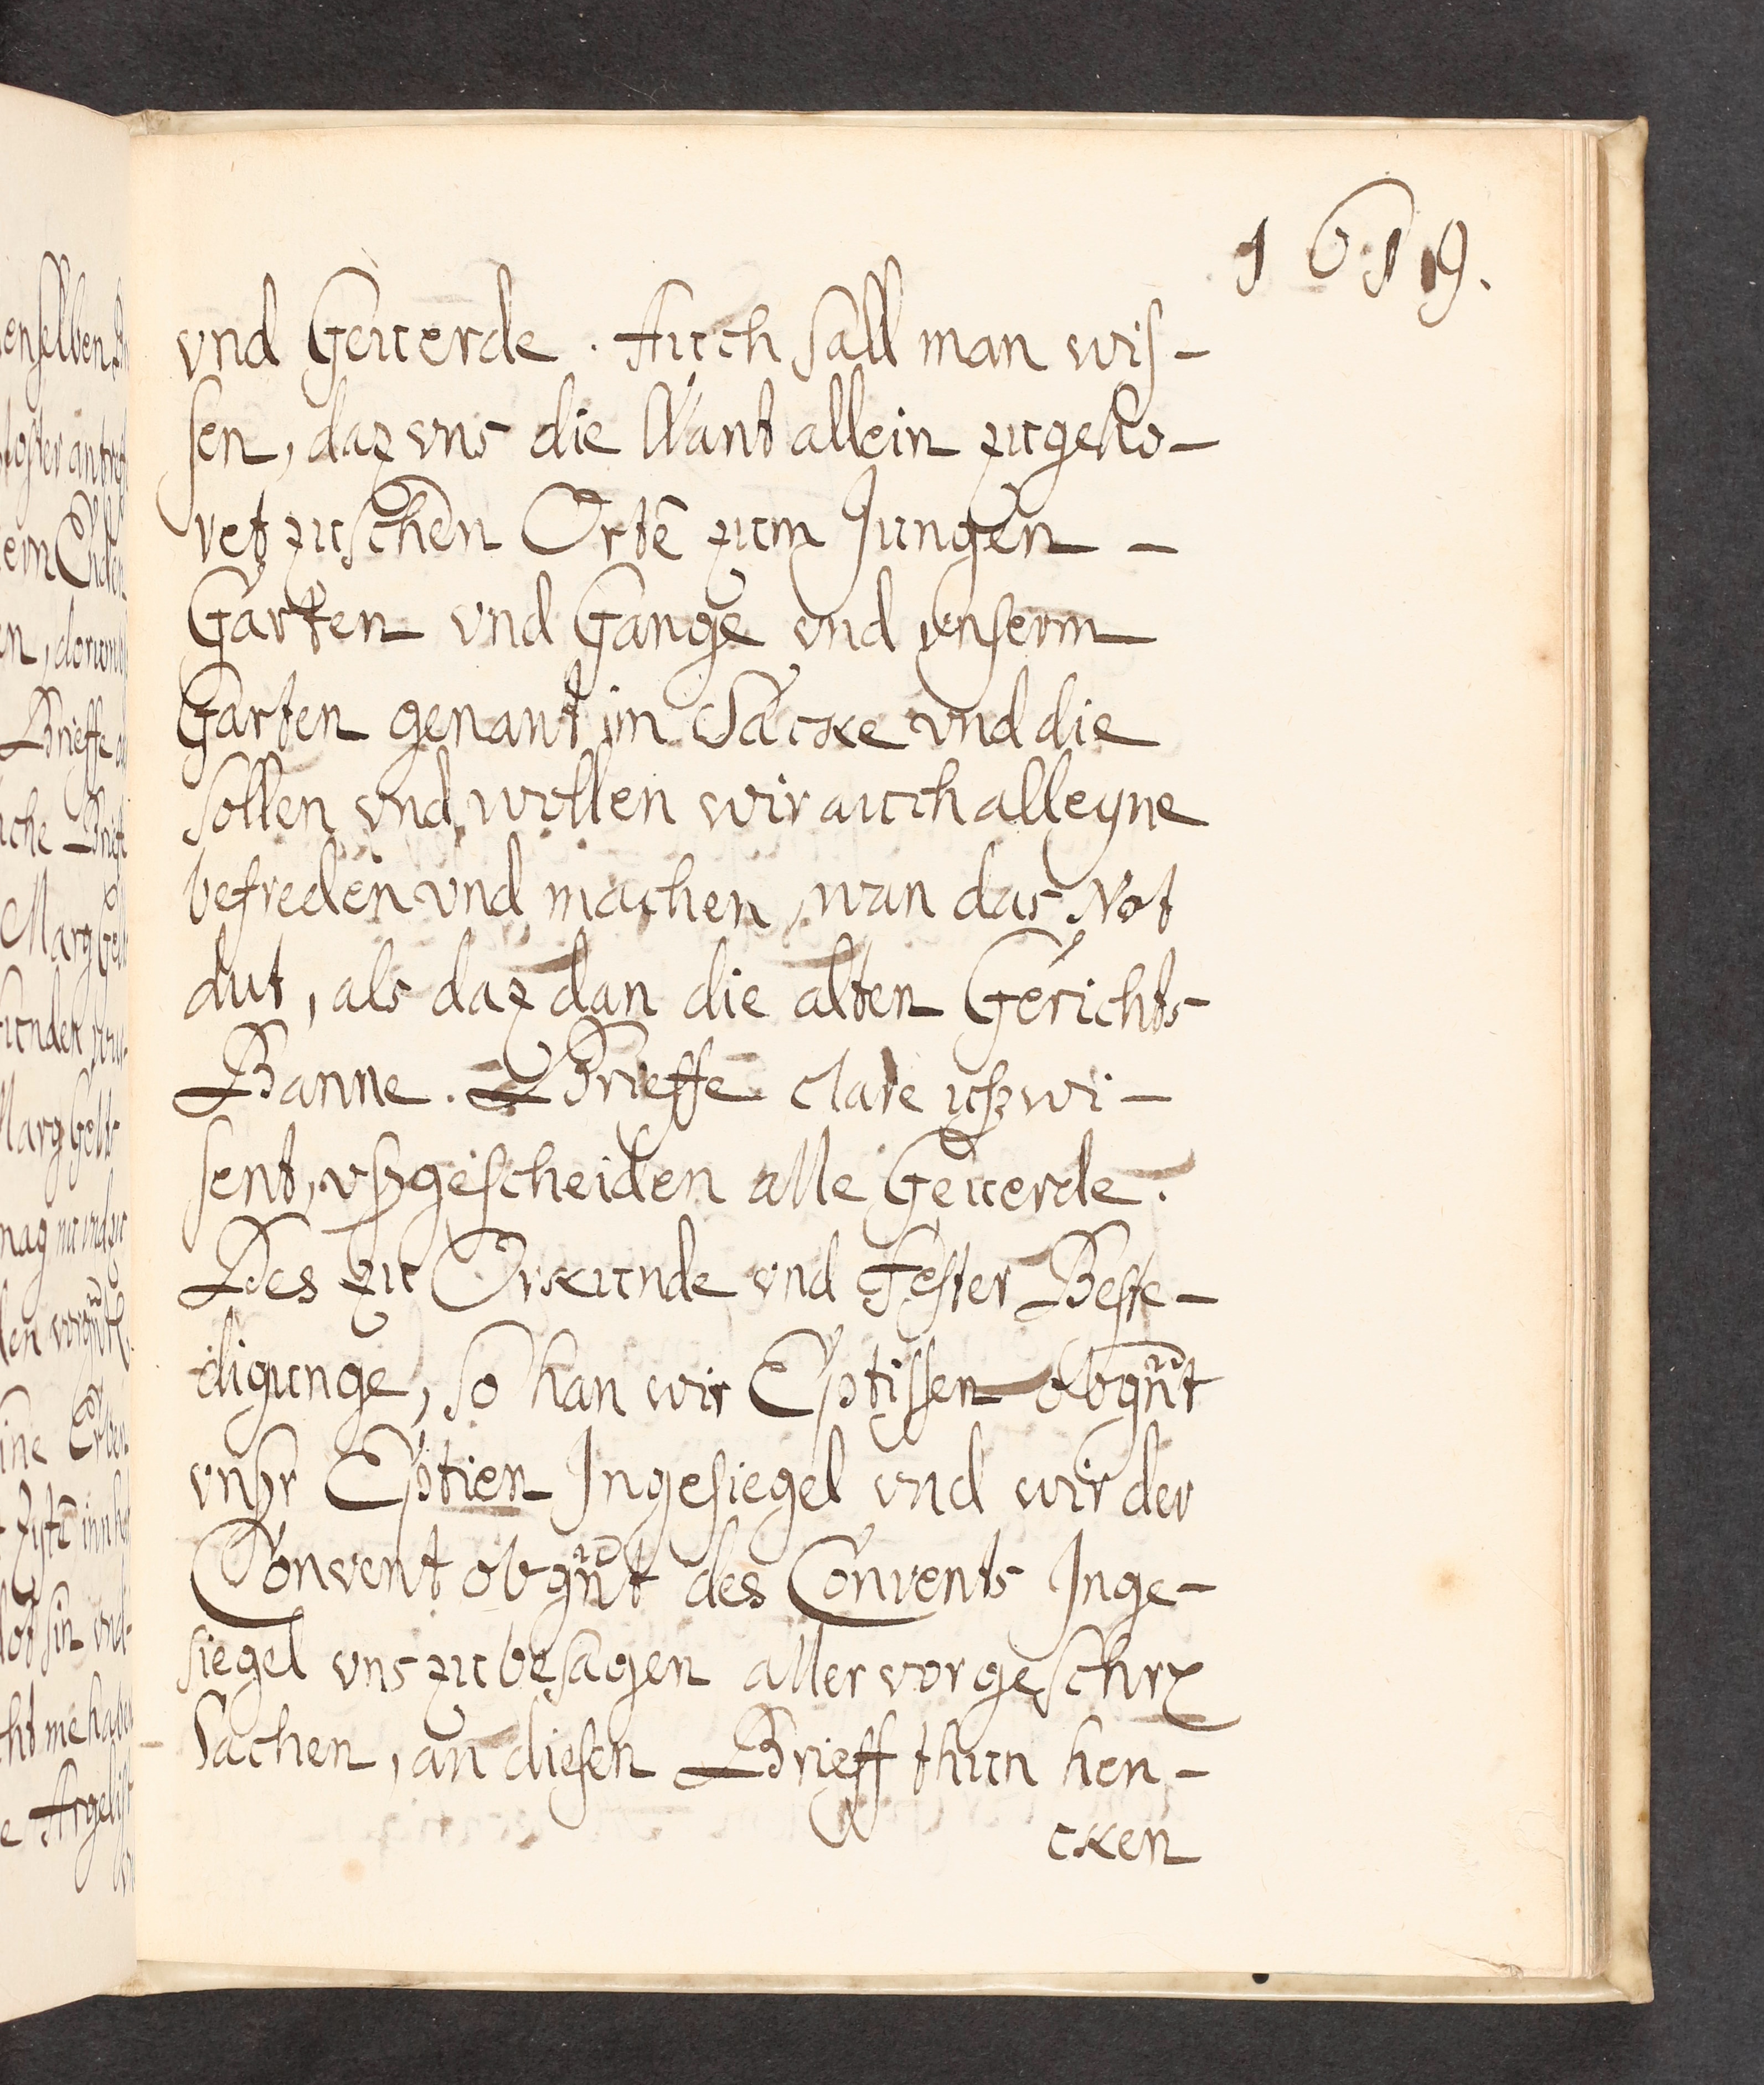 1619.
vnd Geuerde. Auch sall man wis-
sen, daz vns die Want allein zugeho-
ret zuschen Ortē zum Jungen -
Garten vnd Gange vnd vnserm
Garten genant im Sacke vnd die
sollen vnd wollen wir auch alleyne
befreden vnd machen, wan das Not
dut, als daz dan die alten Gerichts-
Banne. Brieffe clare ußwi-
sent, vßgescheiden alle Geuerde.
Des zu Orkunde vnd Fester Beste-
digunge, so han wir Eptissen obgn̄t
vnßr Eptien Ingesiegel vnd wir der
Convent obgn̄t des Convents Inge-
siegel vns zu besagen aller vorgeschrx
Sachen, an diesen Brieff thun hen-
cken